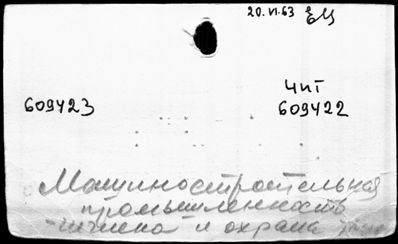 20.VI.63 ЕЦ
ЧИТ
609423 609422
Машиностроительная
промышленность
гигиена и охрана